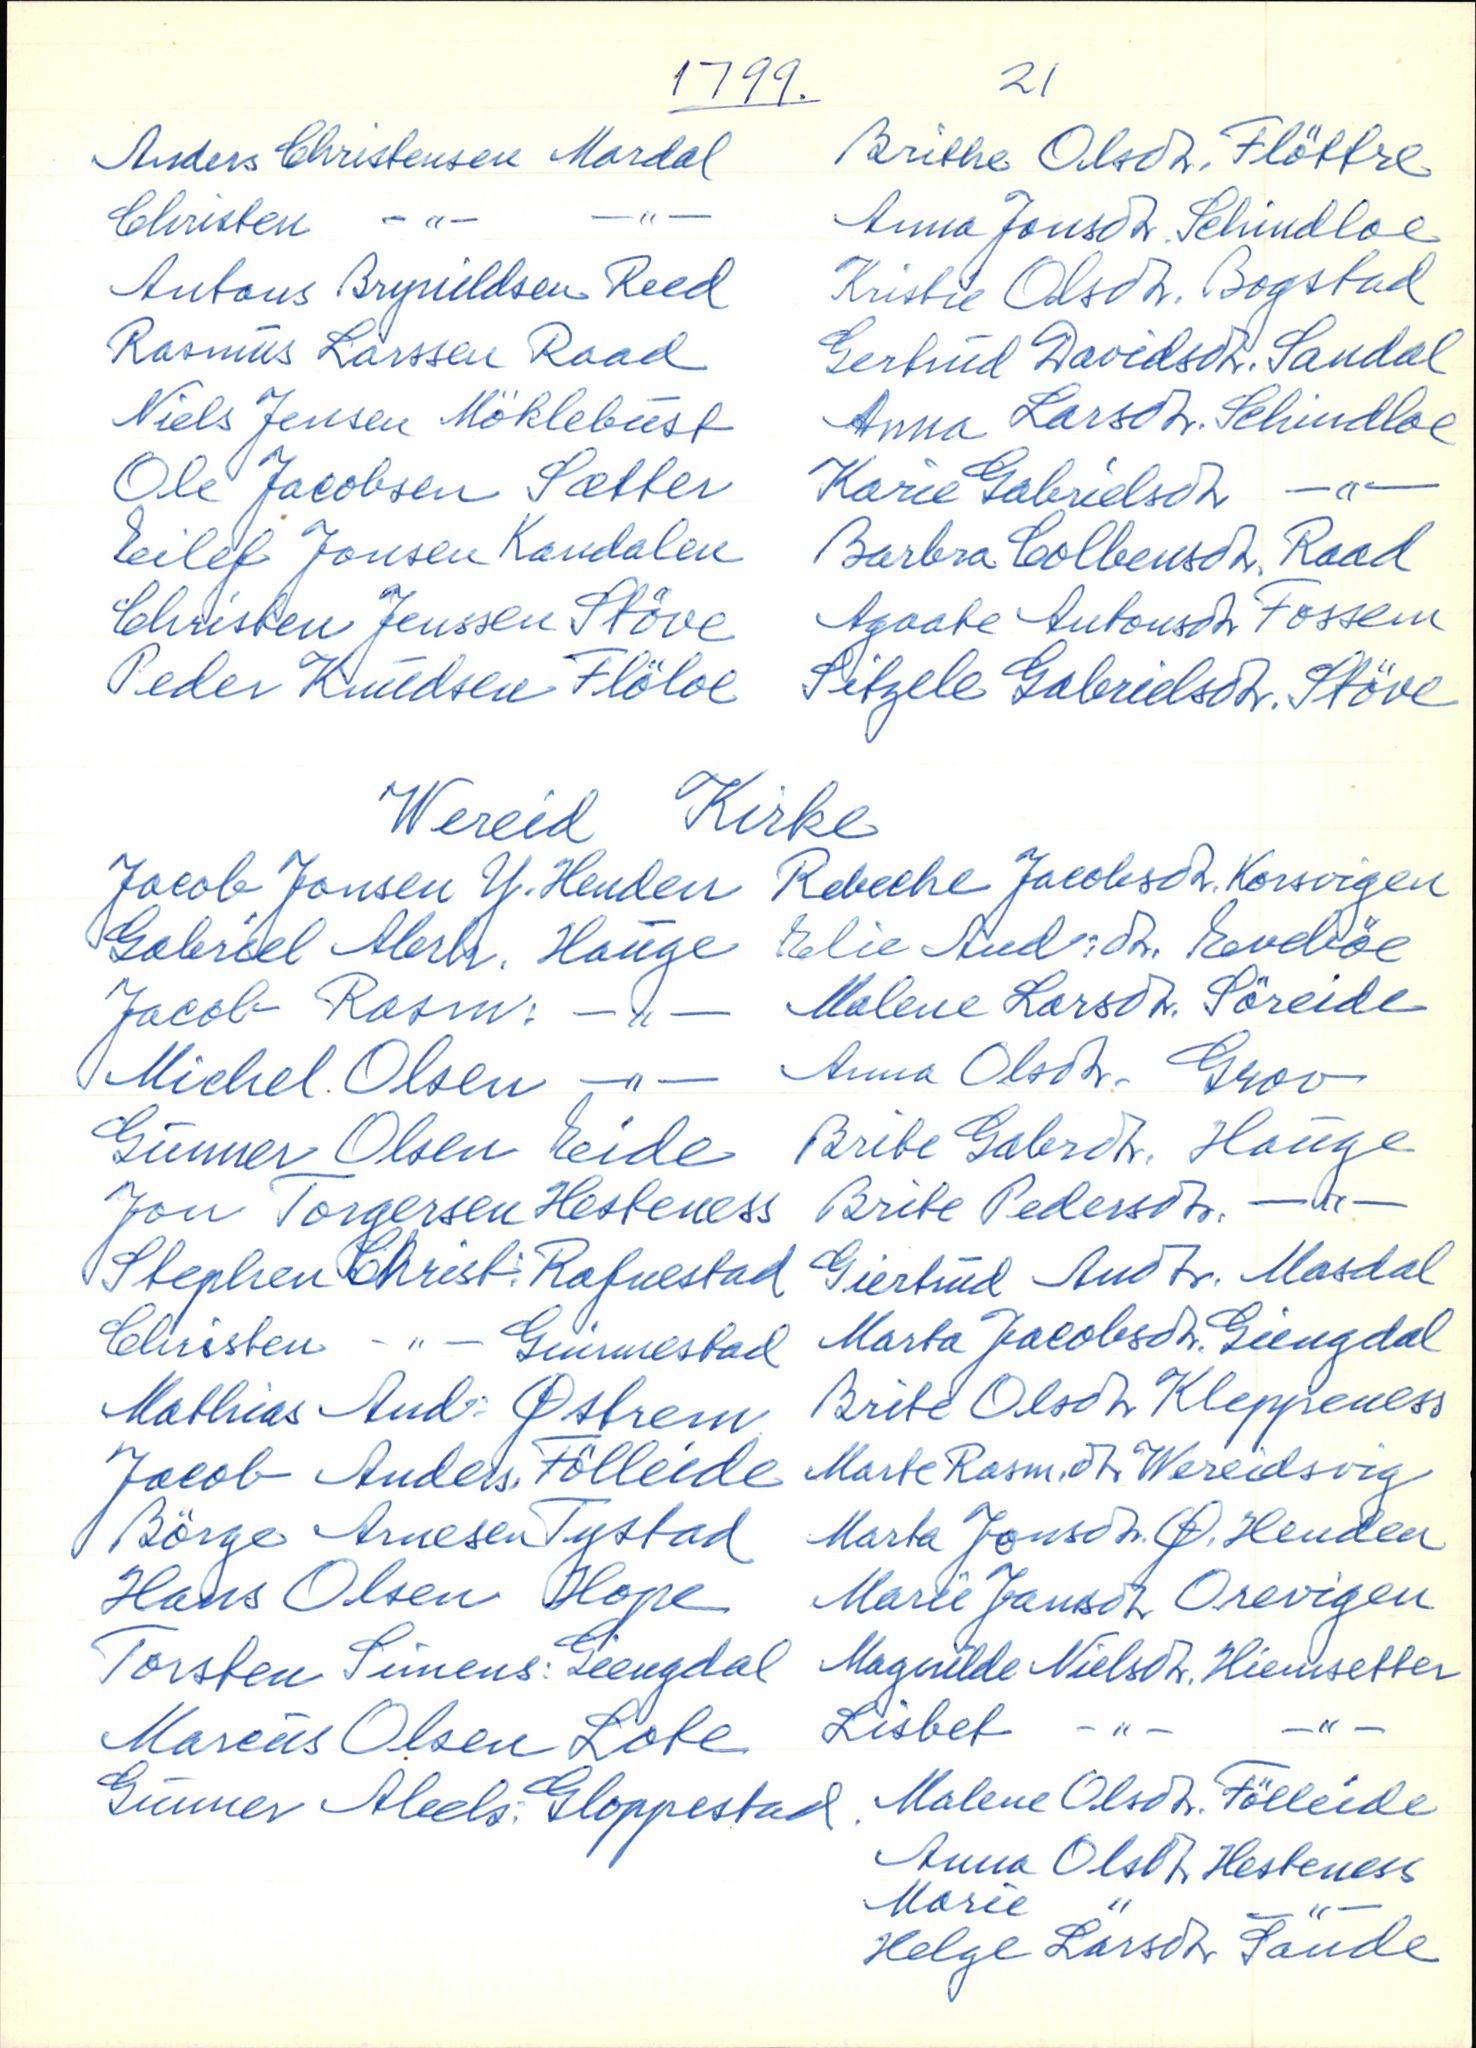 1799. 21
Anders Christensen Mardal Brithe Olsdtr. Flöttre
Christen -"- -"- Anna Jonsdtr. Schindloe
Antous Brynildsen Reed Kristie Olsdtr. Bogstad
Rasmus Larssen Raad Gertrud Davidsdtr. Sandal
Niels Jensen Möklebust Anna Larsdtr. Schindloe
Ole Jacobsen Sætter Karie Gabrielsdtr -"-
Eilef Jonsen Kandalen Barbra Colbensdtr. Raad
Christen Jenssen Stöve Agaate Antonsdtr Fossem
Peder Knudsen Flöloe Sitzele Gabrielsdtr. Stöve
Wereid Kirke
Jacob Jonsen Y. Henden Rebeche Jacobsdtr. Korsvigen
Gabriel Abrh. Hauge Elie And:dtr. Eveböe
Jacob Rasm: -"- Malene Larsdtr. Söreide
Michel Olsen -"- Anna Olsdtr. Grov
Gunner Olsen Eide Brite Gabrdtr. Hauge
Jon Torgersen Hesteness Brite Pedersdtr. -"-
Stephen Christ: Rafnestad Giertrud Andtr. Masdal
Christen -"- Gimmestad Marta Jacobsdtr. Giengdal
Mathias And: Østrem Brite Olsdtr Kleppeness
Jacob Anders. Fölleide Marte Rasm.dtr Wereidsvig
Börge Arnesen Tystad Marta Jonsdtr. Ø. Henden
Hans Olsen Hope Marie Jansdtr Orevigen
Torsten Simens: Giengdal Magnilde Nielsdtr. Hiemsetter
Marcus Olsen Lote Lisbet -"- -"-
Gunner Aleels: Gloppestad. Malene Olsdtr. Fölleide
Anna Olsdtr Hesteness
Marie " -"-
Helge Larsdtr Sande